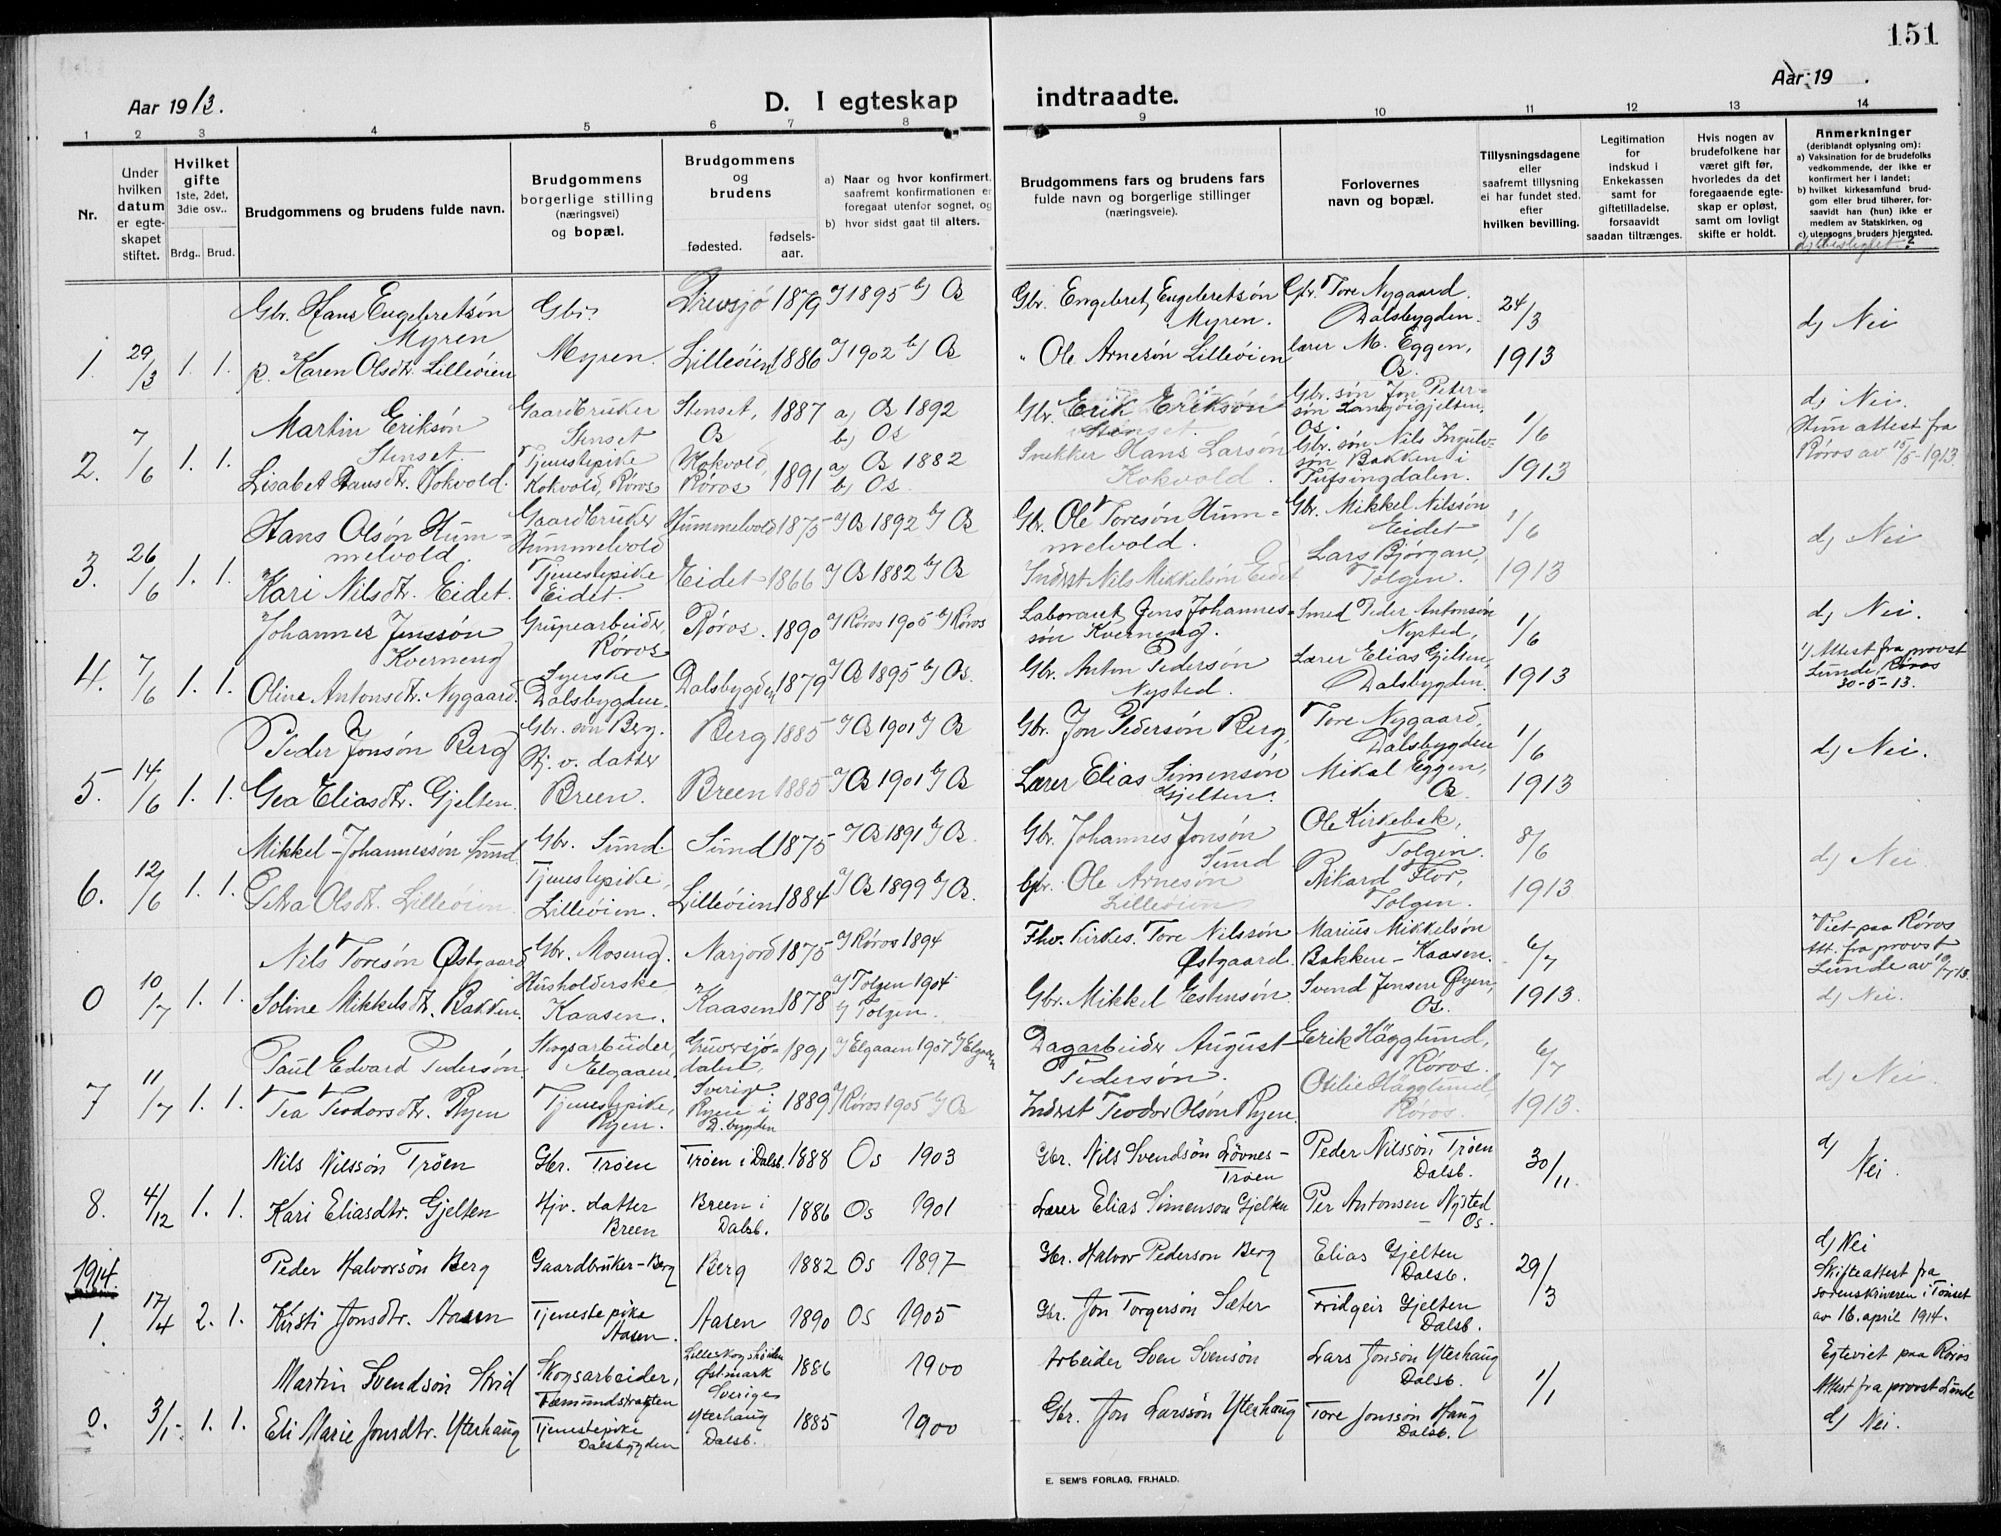 151
Aar 1913.
D. I egteskap
indtraadte.
Aar 19 .
1 2 3 4 5 6 7 8 9 10 11 12 13 14
Nr.
Under hvilken datum er egteskapet stiftet.
Hvilket gifte
1ste, 2det, 3die osv..
Brdg.. Brud.
Brudgommens og brudens fulde navn.
Brudgommens borgerlige stilling (næringsvei) og bopæl.
Brudgommens og brudens
fødested. fødselsaar.
a) Naar og hvor konfirmert, saafremt konfirmationen er foregaat utenfor sognet, og
b) hvor sidst gaat til alters.
Brudgommens fars og brudens fars fulde navn og borgerlige stillinger (næringsveie).
Forlovernes navn og bopæl.
Tillysningsdagene eller saafremt tillysning ei har fundet sted, efter hvilken bevilling.
Legitimation for indskud i Enkekassen samt for giftetilladelse, forsaavidt saadan tiltrænges.
Hvis nogen av brudefolkene har været gift før, hvorledes da det foregaaende egteskap er opløst, samt om lovligt skifte er holdt.
Anmerkninger (deriblandt oplysning om):
a) Vaksination for de brudefolks vedkommende, der ikke er konfirmert her i landet;
b) hvilket kirkesamfund brudgom eller brud tilhører, forsaavidt han (hun) ikke er medlem av Statskirken, og
c) utensogns bruders hjemsted.
Gbr. Hans Engebretsön Myren Gbr. Drevsjö 1879 a) 1895 b) Os Gbr. Engebret Engebretsön Myren. Gbr. Tore Nygaard. Dalsbygden. 24/3
1. 29/3 1. 1. p. Karen Olsdtr. Lilleöien Myren. Lilleöien 1886 a) 1902 b) Os " Ole Arnesön Lilleöien lærer M. Eggen, Os. 1913 d) Nei
Martin Eriksön Stenset Gaardbruker Stenset Stenset, Os 1887 a) Os 1892 b) Os Gbr. Erik Eriksön Stenset. Gbr. søn Jon Petersön Langöigjelten, Os. 1/6 d) Nei.
2. 7/6 1. 1. Lisabet Hansdtr. Kokvold. Tjenestepike Kokvold, Röros Kokvold, Röros 1891 a) Os 1882 b) Os. Snekker Hans Larsön Kokvold. Gbr. søn Nils Ingulvsön Bakken i Tufsingdalen. 1913 Hun attest fra Röros av 15/5-1913.
Hans Olsön Hummelvold. Gaardbruker Hummelvold Hummelvold 1875 a) Os 1892 b) Os Gbr. Ole Toresön Hummelvold. Gbr. Mikkel Nilssön Eidet 1/6
3. 26/6 1. 1. Kari Nilsdtr. Eidet. Tjenestepike Eidet. Eidet 1866 a) Os 1882 b) Os Inderst Nils Mikkelsön Eidet Lars Bjørgan, Tolgen. 1913 d) Nei
Johannes Jenssön Kverneng Grupearbeider, Röros Röros. 1890 a) Röros 1905 b) Röros Laborant Jens Johannessön Kverneng. Smed Peder Antonsön Nysted, 1/6 d) Nei.
4. 7/6 1. 1. Oline Antonsdtr. Nygaard. Syerske Dalsbygden. Dalsbygden 1879 a) Os 1895 b) Os. Gbr. Anton Pedersön Nysted. Lærer Elias Gjelten, Dalsbygden. 1913 1) Attest fra provst Lunde, Röros 30-5-13.
Peder Jonsön Berg Gbr. søn Berg. Berg 1885 a) Os 1901 b) Os Gbr. Jon Pedersön Berg. Tore Nygaard, Dalsbygden 1/6
5. 14/6 1. 1. Gea Eliasdtr. Gjelten. Hj. v. datter Breen. Breen 1885 a) Os 1901 b) Os Lærer Elias Simensön Gjelten. Mikal Eggen, Os. 1913 d) Nei.
Mikkel Johannessön Sund. Gbr. Sund. Sund 1875 a) Os 1891 b) Os. Gbr. Johannes Jonsön Sund Ole Kirkebak, Tolgen. 8/6
6. 12/6 1. 1. Petra Olsdtr. Lilleöien Tjenestepike, Lilleöien. Lilleöien 1884 a) Os 1899 b) Os. Gbr. Ole Arnesön Lilleöien Rikard Flor, Tolgen. 1913 d) Nei
Nils Toresön Østgaard Gbr. Moseng. Narjord 1875 a) Röros 1894 Fhv. kirkes. Tore Nilssön Østgaard. Marius Mikkelsön Bakken - Kaasen. 6/7 Viet paa Röros Att. fra provst Lunde av 10/7 13.
0 10/7 1. 1. Soline Mikkelsdtr. Bakken. Husholderske Kaasen. Kaasen 1878 a) Tolgen 1904 b) Tolgen. Gbr. Mikkel Estensön. Svend Jensen Øyen, Os. 1913. d) Nei.
Paul Edvard Pedersön. Skogsarbeider, Elgaaen. Gruversjödalen, Sverige 1891 a) Elgaaen 1907 b) Elgaaen Dagarbeider August Pedersön. Erik Häggtund, Röros. 6/7
7 11/7 1. 1. Tea Teodorsdtr. Ryen Tjenestepike, Ryen. Ryen i D.bygden 1889 a) Röros 1905 b) Os Inderst Teodor Olsön Ryen Otilie Häggtund, Röros. 1913. d) Nei.
Nils Nilssön Tröen Gbr. Tröen Tröen i Dalsb. 1888 Os 1903 Gbr. Nils Svendsön Lövnes-Tröen Peder Nilssön Tröen Dalsb. 30/11. d) Nei.
8. 4/12 1. 1. Kari Eliasdtr. Gjelten Hjv. datter Breen Breen i Dalsb. 1886 Os 1901 Lærer Elias Simenson Gjelten Per Antonsen Nysted Os.
1914.
Peder Halvorsön Berg Gaardbruker - Berg Berg 1882 Os 1897 Gbr. Halvor Pederson Berg Elias Gjelten Dalsb. 29/3 d) Nei
1. 17/4 2. 1. Kirsti Jonsdtr. Aasen Tjenestepike Aasen. Aasen 1890 Os 1905 Gbr. Jon Torgersön Sæter Fridgeir Gjelten Dalsb. Skifteattest fra sorenskriveren i Tönset av 16. april 1914.
Martin Svendsön Hvid Skogsarbeider, Fæmundstrakten Östmark Sverige 1886 1900 Arbeider Sven Svensön Lars Jonsön Yterhaug Dalsb. 1/1 Egteviet paa Röros
0. 3/1- 1. 1. Eli Marie Jonsdtr. Yterhaug Tjenestepike Dalsbygden Yterhaug Dalsb. 1885 1900 Gbr. Jon Larssön Yterhaug Tore Jonssön Haug Dalsb. Attest fra provst Lunde d) Nei.
E. SEM'S FORLAG, FR.HALD.